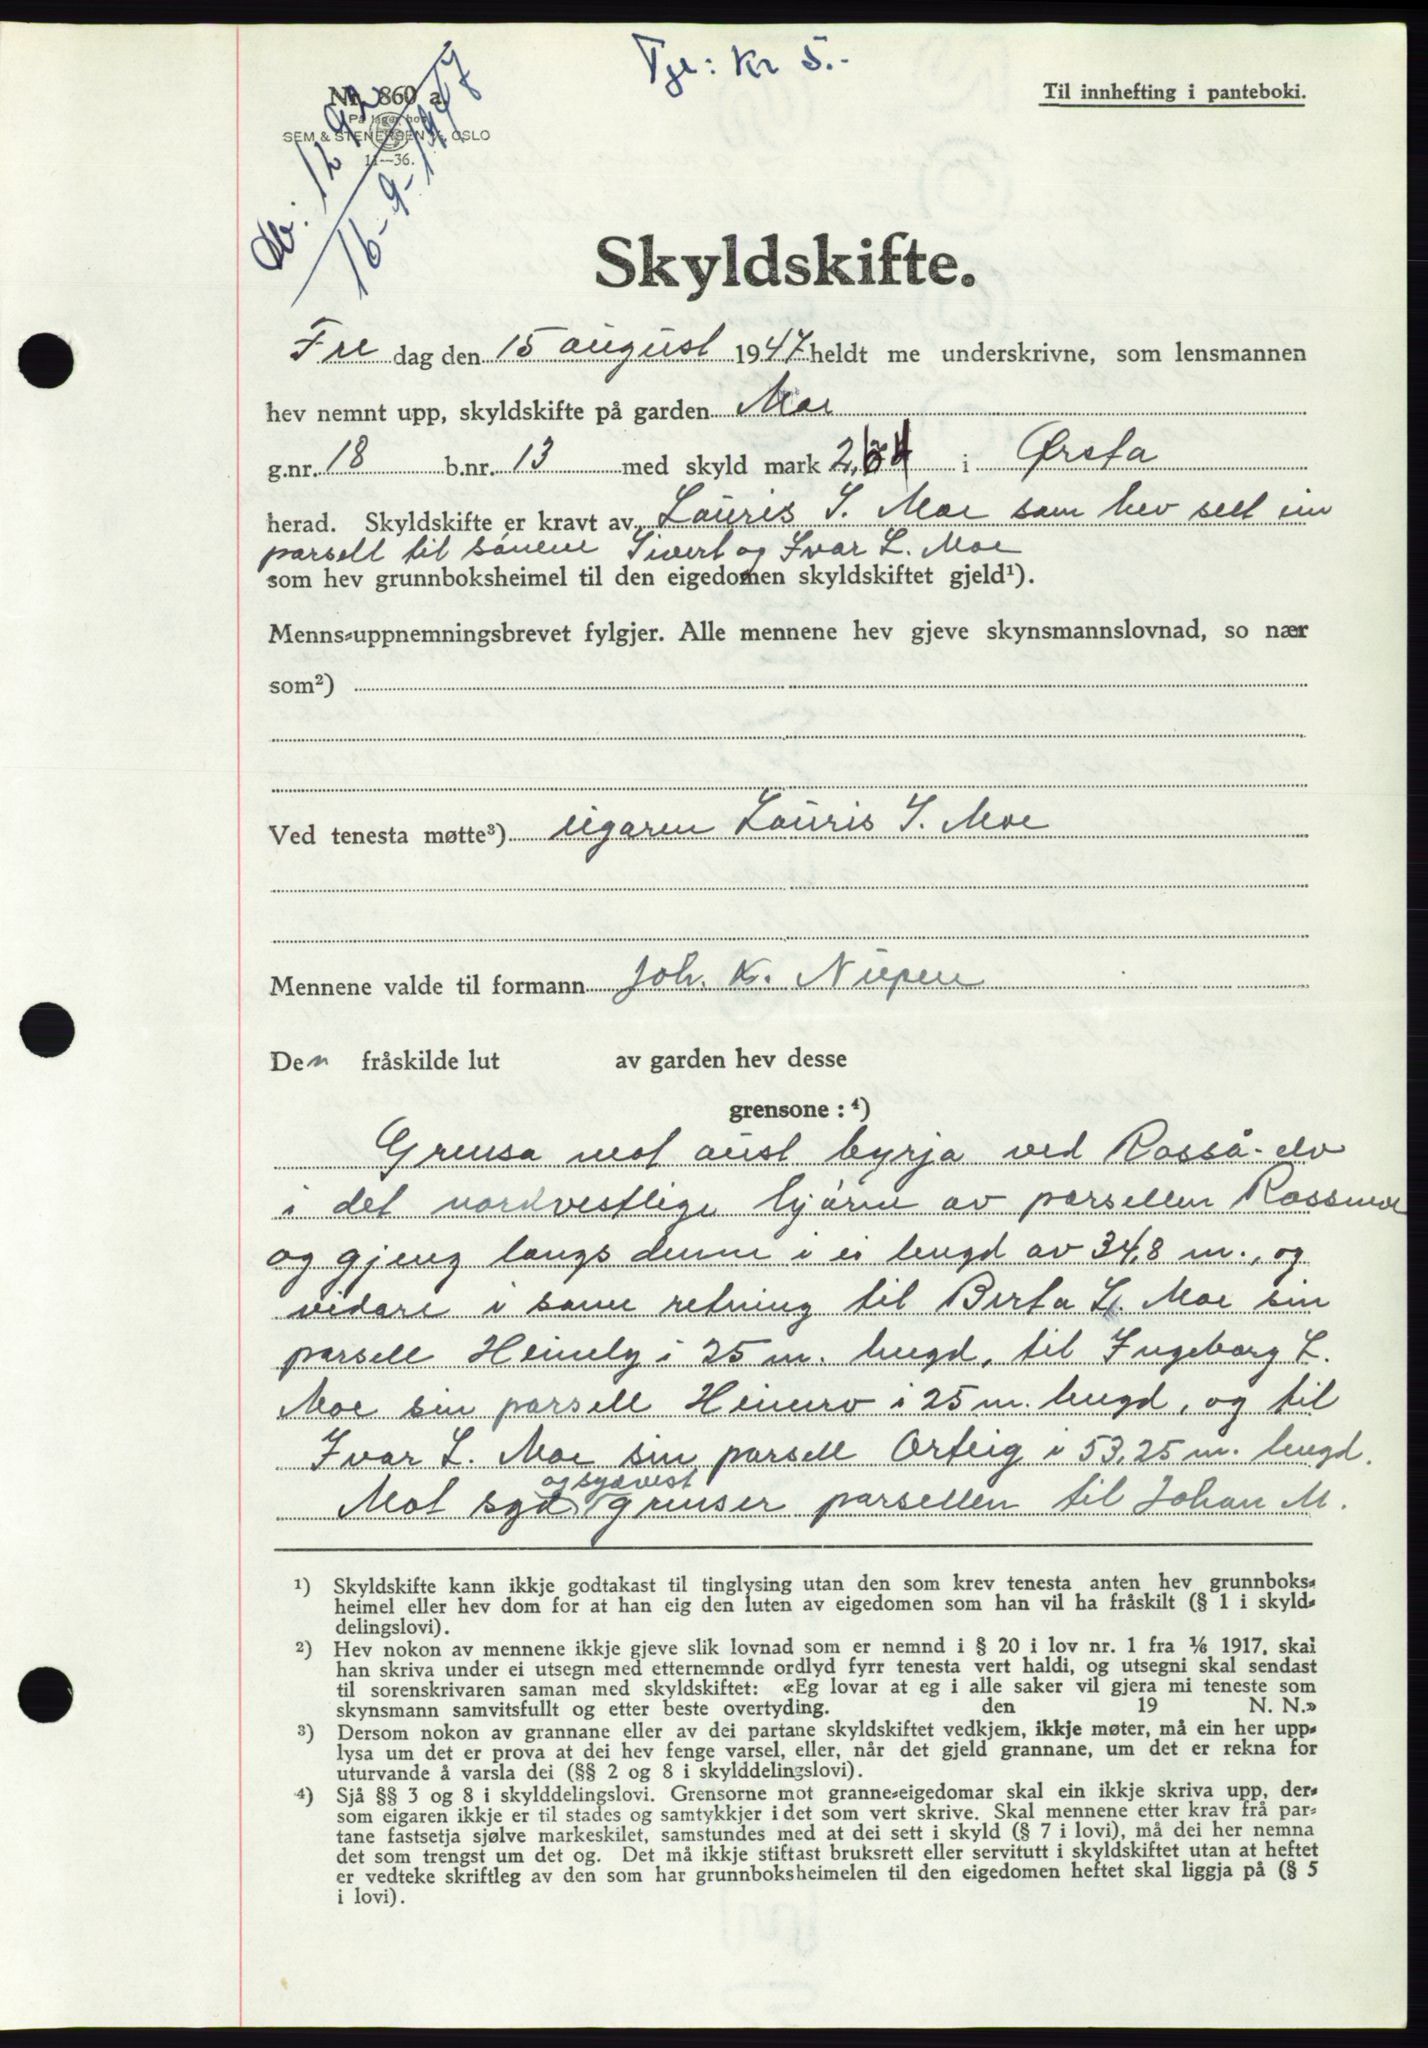 Tgl: Kr 5.-
Nr. 860 a.
På lager hos
SEM & STENERSEN A/S, OSLO
11—36.
Til innhefting i panteboki.
Db: 1292
16-9-1947
Skyldskifte.
Fre dag den 15 august 1947 heldt me underskrivne, som lensmannen
hev nemnt upp, skyldskifte på garden Moe
g.nr. 18 b.nr. 13 med skyld mark 2,64 i Ørsta
herad. Skyldskifte er kravt av Lauris S. Moe som hev selt ein
parsell til sønene Sivert og Ivar L. Moe
som hev grunnboksheimel til den eigedomen skyldskiftet gjeld¹).
Menns-uppnemningsbrevet fylgjer. Alle mennene hev gjeve skynsmannslovnad, so nær
som²)
Ved tenesta møtte³) eigaren Lauris S. Moe
Mennene valde til formann Joh. K. Nupen
Den fråskilde lut av garden hev desse
grensone : ⁴)
Grensa mot aust byrja ved Rosså-elv
i det nordvestlige hjørne av parsellen Rossmoe
og gjeng langs denne i ei lengd av 34,8 m., og
vidare i same retning til Berta L. Moe sin
parsell Heimely i 25 m. lengd, til Ingeborg L.
Moe sin parsell Heimro i 25 m. lengd, og til
Ivar L. Moe sin parsell Orteig i 53,25 m. lengd.
og sydvest
Mot syd grenser parsellen til Johan M.
¹) Skyldskifte kann ikkje godtakast til tinglysing utan den som krev tenesta anten hev grunnboks-
heimel eller hev dom for at han eig den luten av eigedomen som han vil ha fråskilt (§ 1 i skyld-
delingslovi).
²) Hev nokon av mennene ikkje gjeve slik lovnad som er nemnd i § 20 i lov nr. 1 fra ⅙ 1917, skal
han skriva under ei utsegn med etternemnde ordlyd fyrr tenesta vert haldi, og utsegni skal sendast
til sorenskrivaren saman med skyldskiftet: «Eg lovar at eg i alle saker vil gjera mi teneste som
skynsmann samvitsfullt og etter beste overtyding. den 19 N. N.»
³) Dersom nokon av grannane eller av dei partane skyldskiftet vedkjem, ikkje møter, må ein her upp-
lysa um det er prova at dei hev fenge varsel, eller, når det gjeld grannane, um det er rekna for
uturvande å varsla dei (§§ 2 og 8 i skylddelingslovi).
⁴) Sjå §§ 3 og 8 i skylddelingslovi. Grensorne mot granne-eigedomar skal ein ikkje skriva upp, der-
som eigaren ikkje er til stades og samtykkjer i det som vert skrive. Skal mennene etter krav frå par-
tane fastsetja sjølve markeskilet, samstundes med at dei sett i skyld (§ 7 i lovi), må dei her nemna
det som trengst um det og. Det må ikkje stiftast bruksrett eller servitutt i skyldskiftet utan at heftet
er vedteke skriftleg av den som har grunnboksheimelen til den eigedomen heftet skal liggja på (§ 5
i lovi).